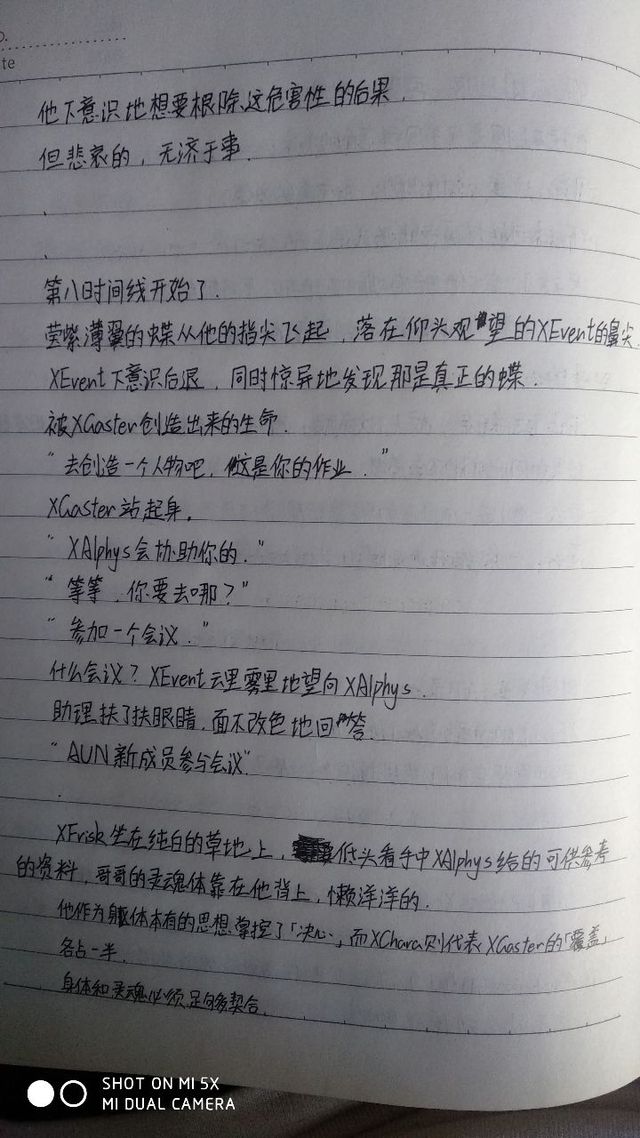 te
他下意识地想要根除这危害性的后果.
但悲哀的，无济于事.
第八时间线开始了.
莹紫薄翼的蝶从他的指尖飞起，落在仰头观望的XEvent的鼻尖.
XEvent下意识后退，同时惊异地发现那是真正的蝶.
被XGaster创造出来的生命.
“去创造一个人物吧，这是你的作业.”
XGaster站起身.
“XAlphys会协助你的.”
“等等，你要去哪？”
“参加一个会议.”
什么会议？XEvent云里雾里地望向XAlphys.
助理扶了扶眼睛，面不改色地回答.
“AUN新成员参与会议”
XFrisk坐在纯白的草地上，低头看手中XAlphys给的可供参考
的资料，哥哥的灵魂体靠在他背上，懒洋洋的.
他作为躯体本有的思想掌控了「决心」，而XChara则代表XGaster的「覆盖」
各占一半.
身体和灵魂必须足够契合.
SHOT ON MI 5X
MI DUAL CAMERA